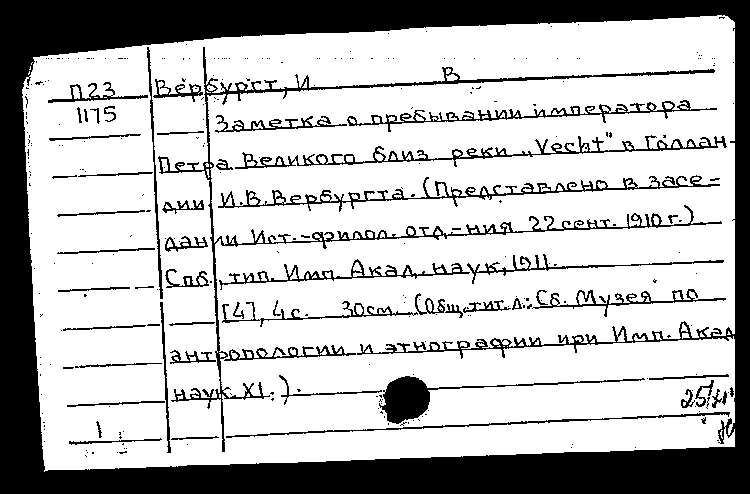 П23 Вербургт, И. В
1175 Заметка о пребывании императора
Петра Великого близ реки „Vecht" в Голлан-
дии И.В.Вербургта. (Представлено в засе-
дании Ист.-филол. отд-ния 22 сент. 1910 г.)
Спб., тип. Имп. Акад. наук, 1911.
[4], 4 с. 30см. (Общ.тит.л.: Сб. Музея по
антропологии и этнографии при Имп. Акад
наук. XI.).
1